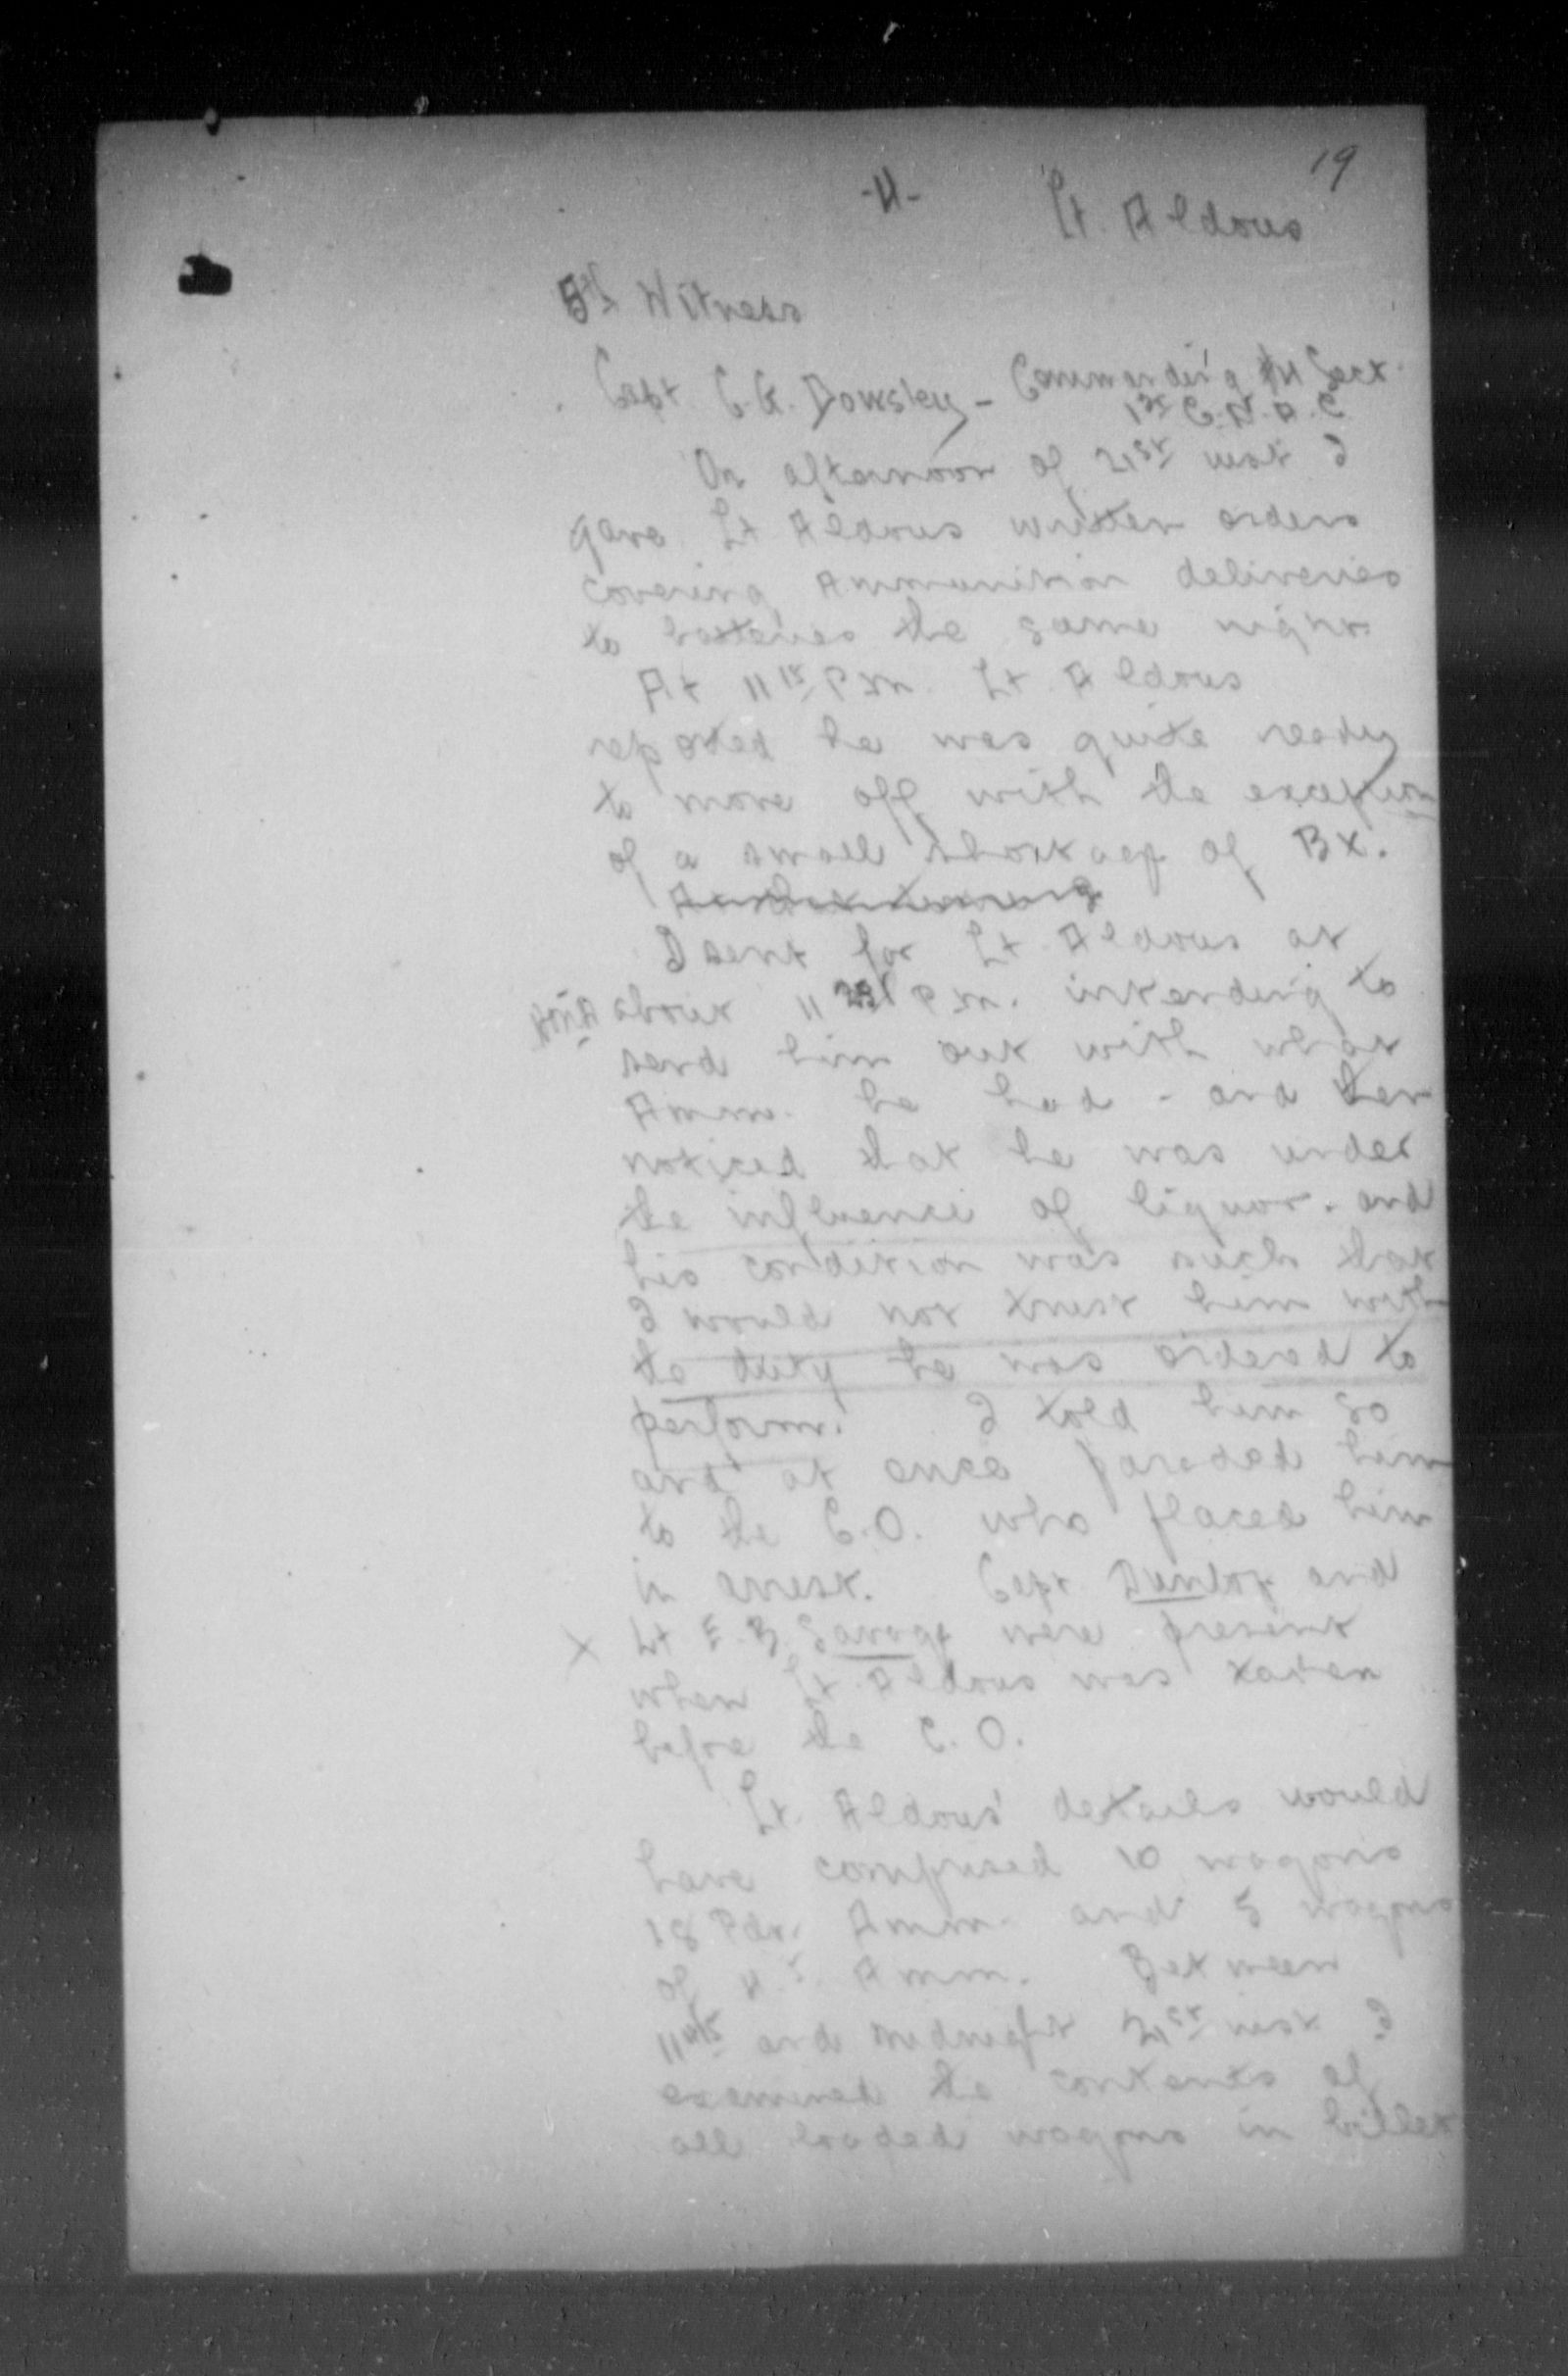 19
-4-
Lt. Aldous
5th Witness
Capt. C.G. Dowsley - Commanding #4 Sect.
1st C.D.A.C.
On afternoon of 21st inst I
gave Lt Aldous written orders
covering Ammunition deliveries
to batteries the same night.
At 11 15 P.m. Lt Aldous
reported he was quite ready
to move off with the exception
of a small shortage of BX.
I sent for Lt. Aldous at
about 11 P.m. intending to
send him out with what
Amm. he had - and then
noticed that he was under
the influence of liquor. and
his condition was such that
I would not trust him with
the duty he was ordered to
perform. I told him so
and at once paraded him
to the C.O. who placed him
in arrest. Capt Dunlop and
X Lt E.B. Savage were present
when Lt. Aldous was taken
before the C.O.
Lt. Aldous' details would
have comprised 10 wagons
18 Pdr. Amm. and 5 wagons
of 4.5 Amm. Between
11 45 and midnight 21st inst I
examined the contents of
all loaded wagons in billet